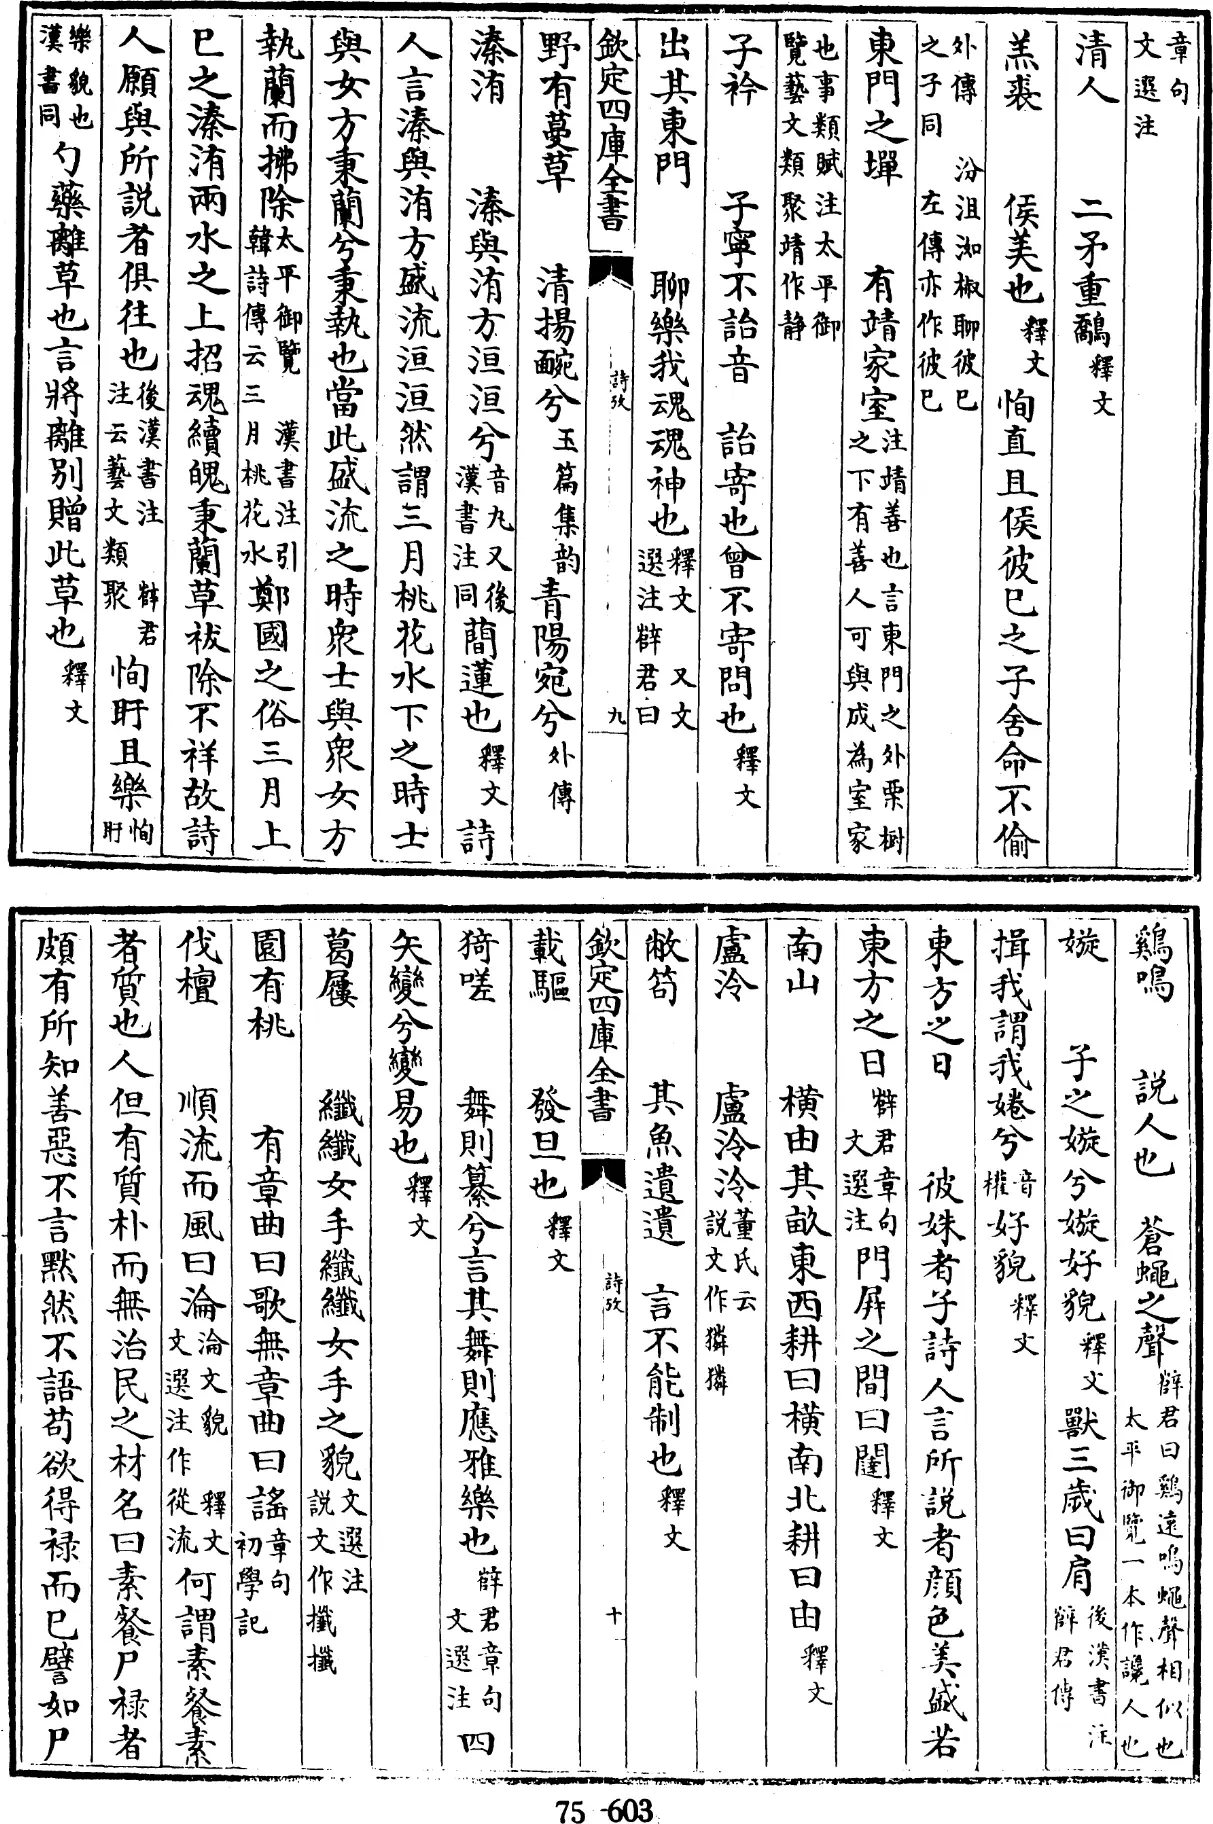 章句
文選注
清人　二矛重鷮釋文
羔裘　侯美也釋文　恂直且侯彼巳之子舍命不偷
外傳　汾沮洳椒聊彼巳
之子同　左傳亦作彼巳
東門之墠　有靖家室注靖善也言東門之外栗樹
之下有善人可與成為室家
也事類賦注太平御
覽藝文類聚靖作静
子衿　子寧不詒音　詒寄也曾不寄問也釋文
出其東門　聊樂我魂魂神也釋文　又文
選注薛君曰
欽定四庫全書　詩攷　九
野有蔓草　清揚䩊兮玉篇集韵青陽宛兮外傳
溱洧　溱與洧方洹洹兮音丸又後
漢書注同蕑蓮也釋文　詩
人言溱與洧方盛流洹洹然謂三月桃花水下之時士
與女方秉蘭兮秉執也當此盛流之時衆士與衆女方
執蘭而拂除太平御覽　漢書注引
韓詩傳云三月桃花水鄭國之俗三月上
巳之溱洧兩水之上招魂續魄秉蘭草祓除不祥故詩
人願與所説者俱往也後漢書注　薛君
注云藝文類聚　恂盱且樂恂
盱
樂貌也
漢書同　勺藥離草也言將離别贈此草也釋文
鷄鳴　説人也　蒼蠅之聲薛君曰鷄遠鳴蠅聲相似也
太平御覽一本作讒人也
嫙　子之嫙兮嫙好貌釋文　獸三歲曰肩後漢書注
薛君傳
揖我謂我婘兮音
權好貌釋文
東方之日　彼姝者子詩人言所説者顔色美盛若
東方之日薛君章句
文選注門屏之間曰闥釋文
南山　横由其畝東西耕曰横南北耕曰由釋文
盧泠　盧泠泠董氏云
説文作獜獜
敝笱　其魚遺遺　言不能制也釋文
欽定四庫全書　詩攷　十
載驅　發旦也釋文
猗嗟　舞則纂兮言其舞則應雅樂也薛君章句
文選注　四
矢變兮變易也釋文
葛屨　纖纖女手纖纖女手之貌文選注
説文作攕攕
園有桃　有章曲曰歌無章曲曰謡章句
初學記
伐檀　順流而風曰淪淪文貌　釋文
文選注作從流　何謂素餐素
者質也人但有質朴而無治民之材名曰素餐尸禄者
頗有所知善惡不言默然不語苟欲得禄而巳譬如尸
75-603